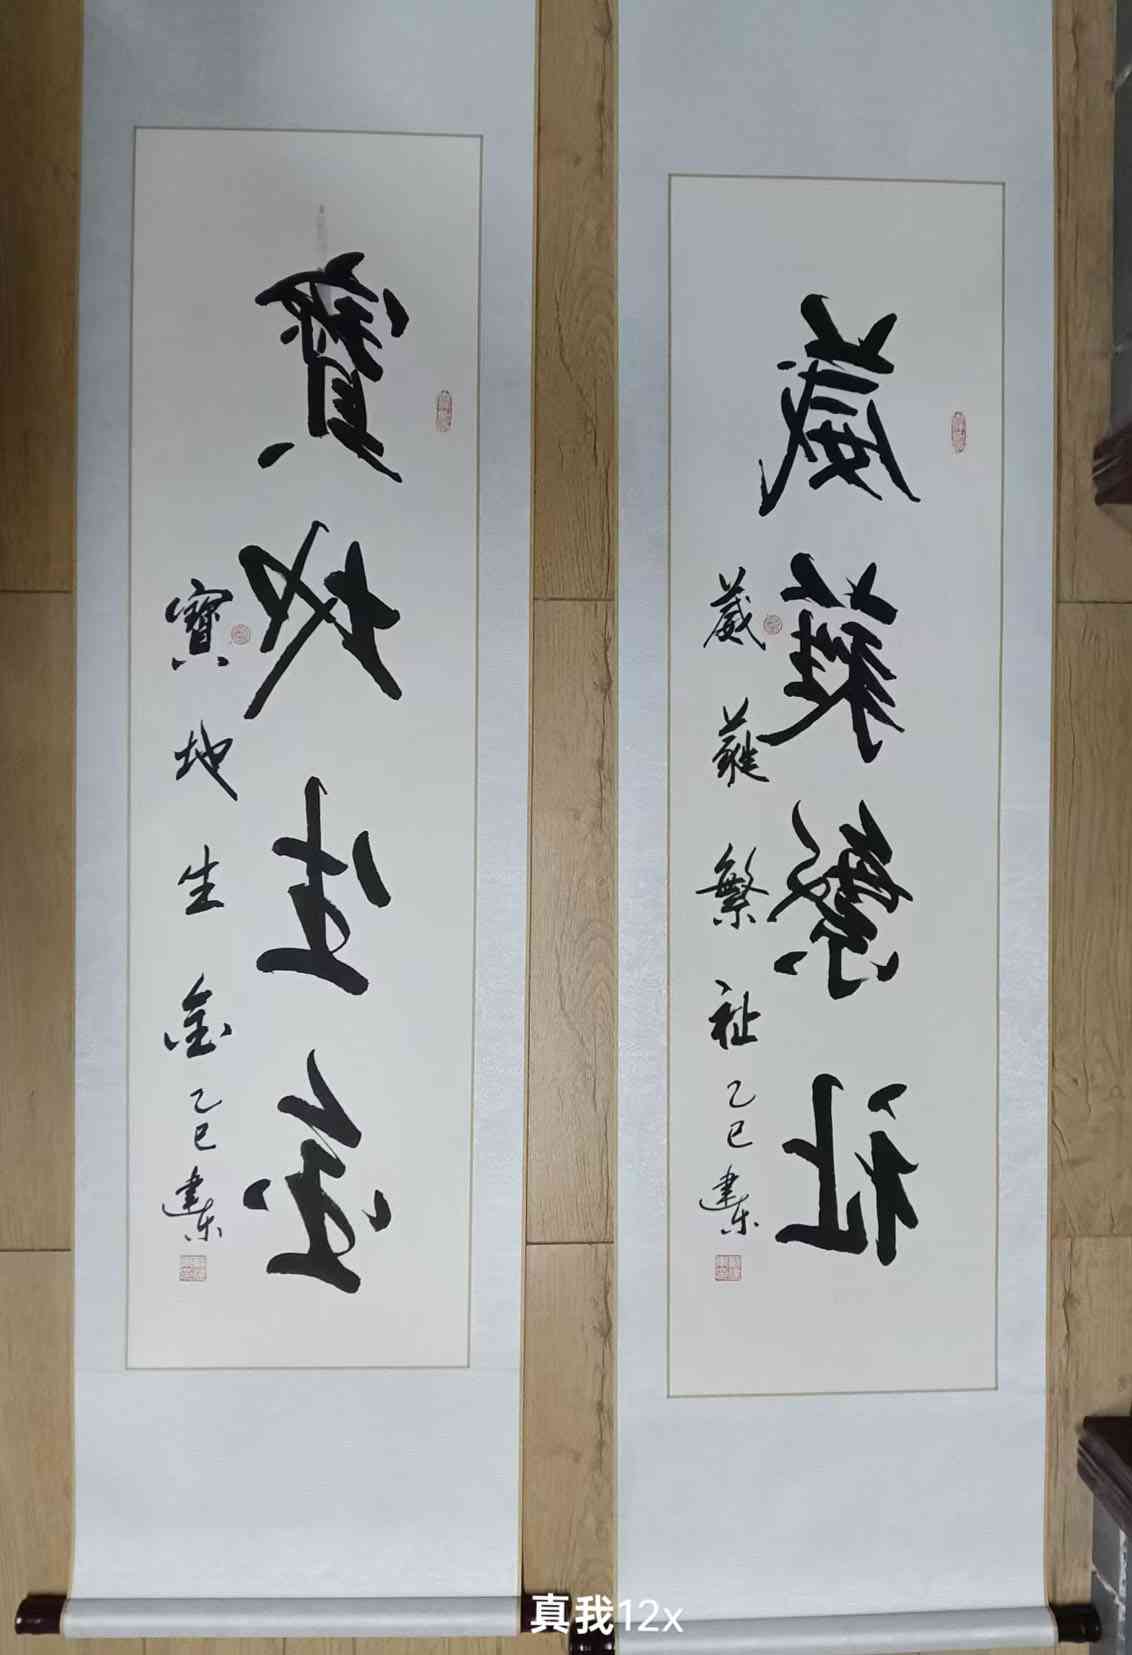 葳蕤繁祉
葳蕤繁祉 乙巳 建东
寶地生金
寶地生金 乙巳 建东
真我12x